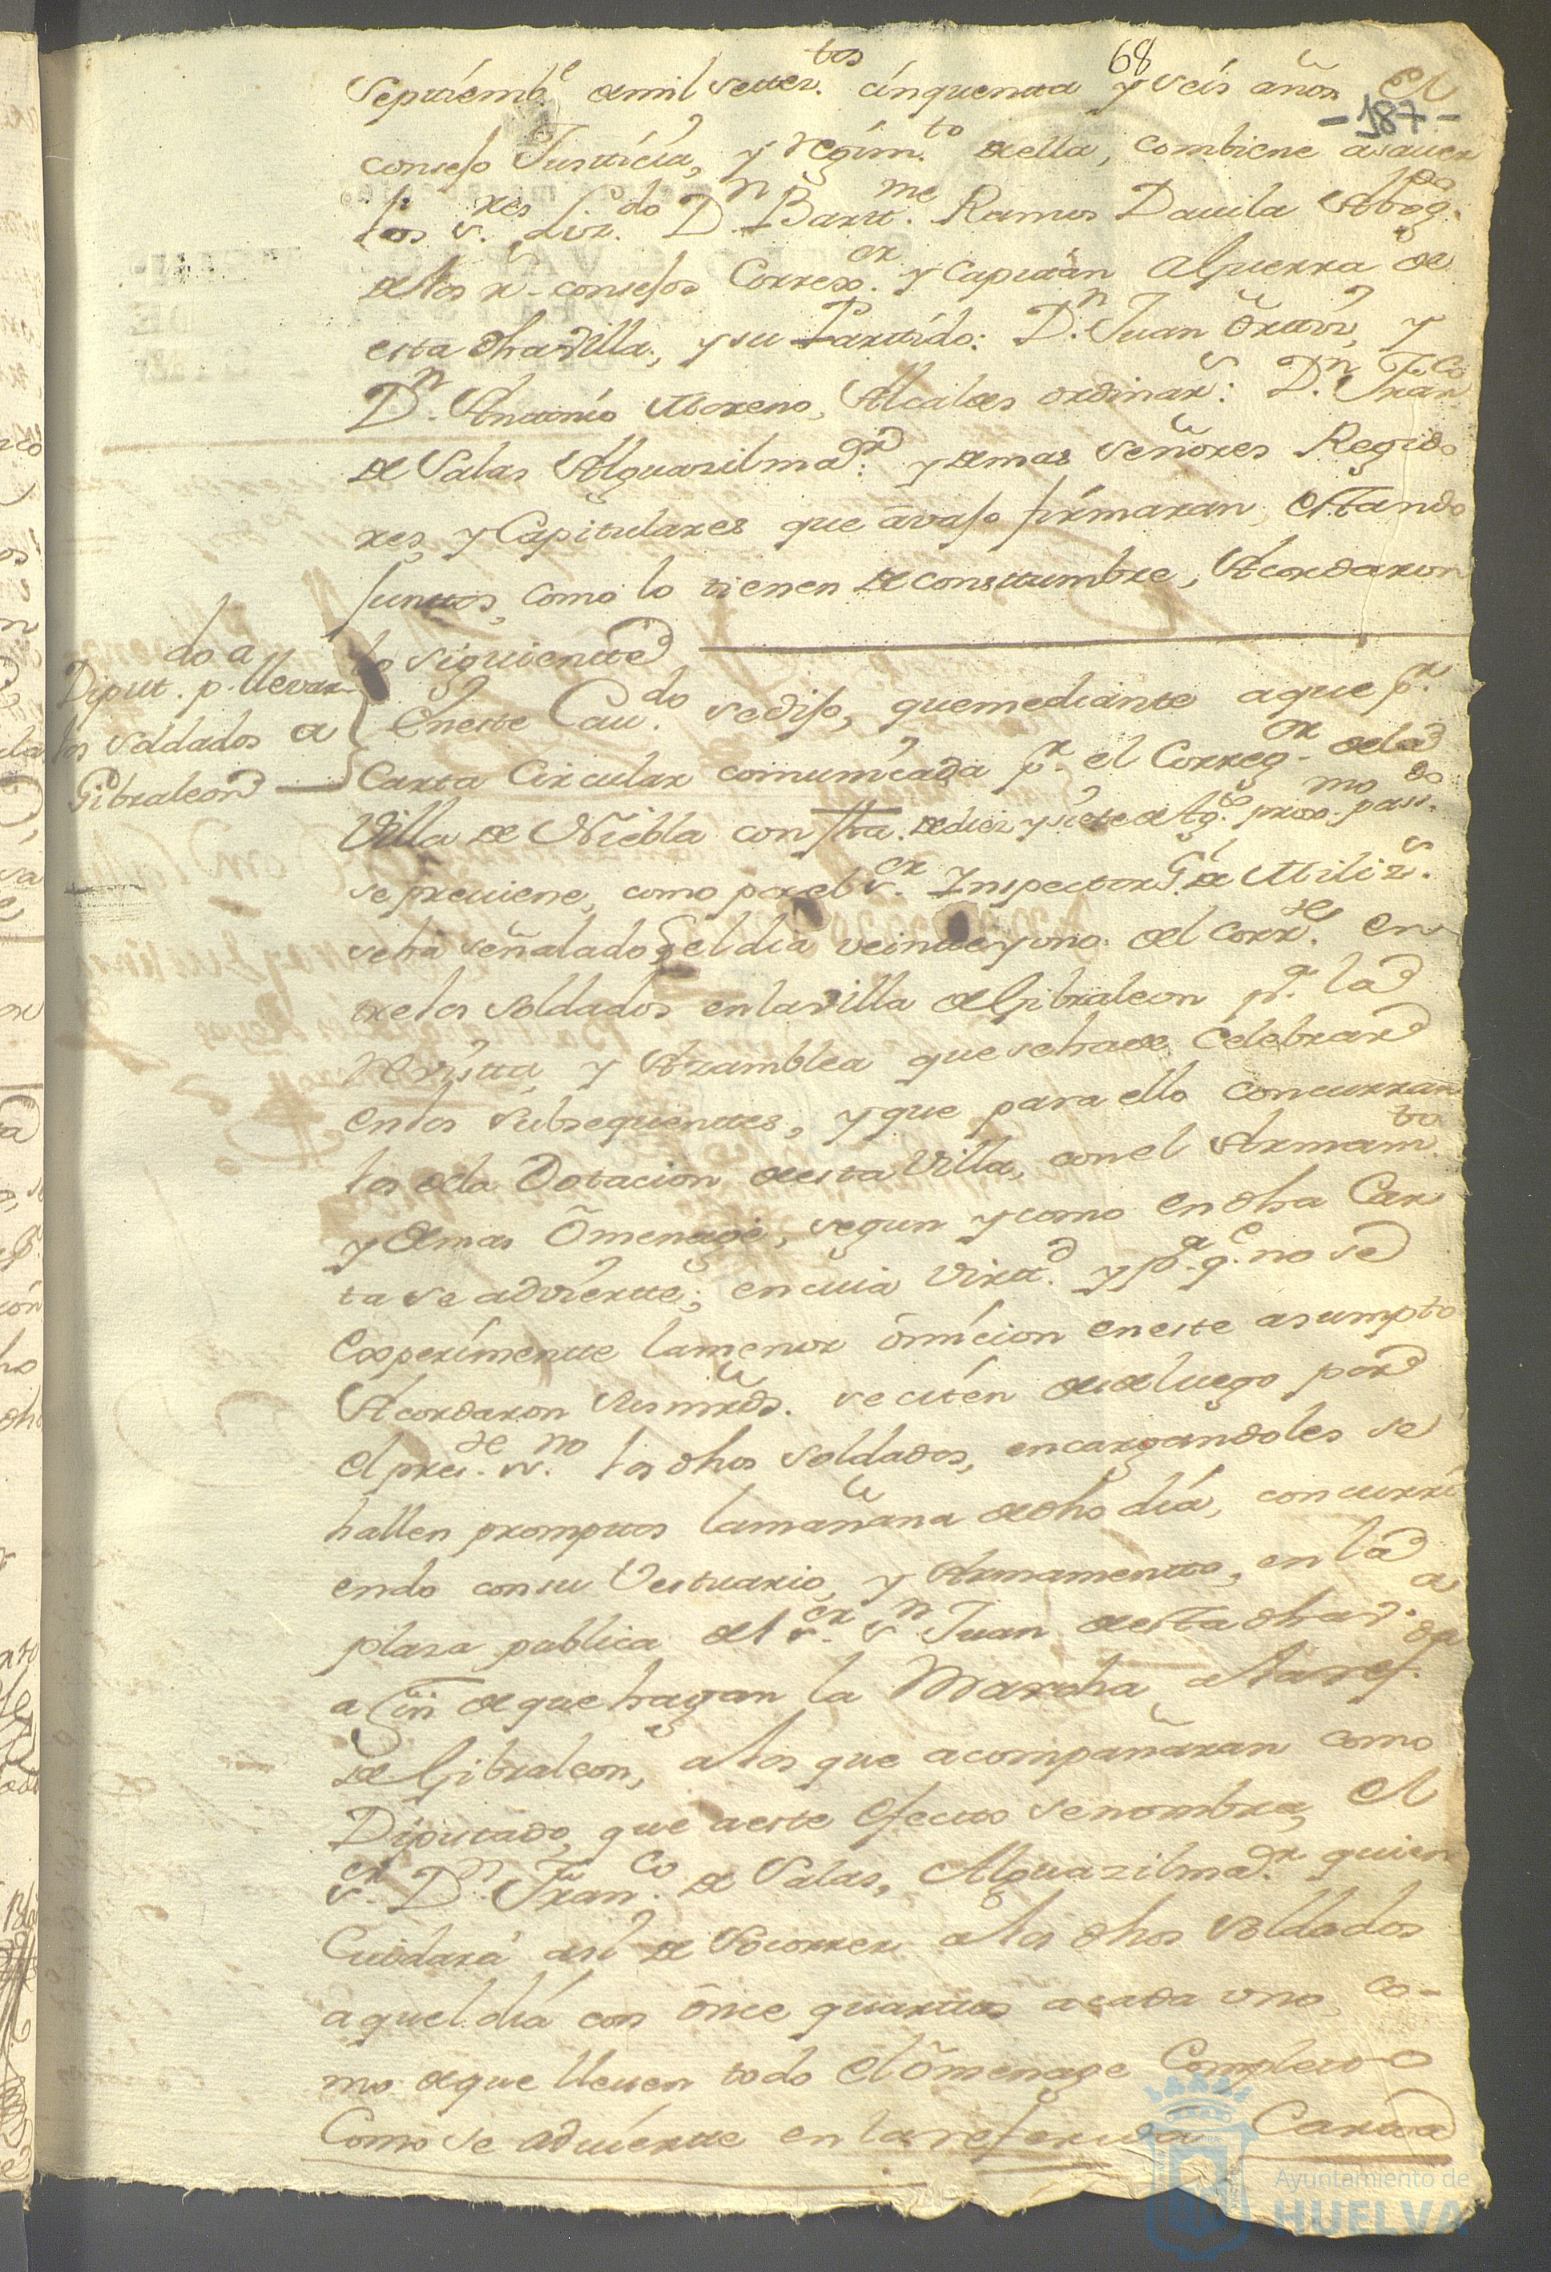 68
- 187 -
Septtiemb.e de mil settez.tos cinquentta y seis años el
consejo Justticia, y regim.to de ella, combiene a saver
los s.res Liz.do D.n Bartt.me Ramos Davila Abog.do
de los r.s consejos Correx.or y Capittan a Guerra de
esta dha Villa, y su Parttido: D.n Juan Ortiz, y
D.n Anttonio Moreno, Alcaldes ordinar.s: D.n Fran.co
de Salas Alguazil ma.or y demas señores Regido
res, y Capitulares que avajo firmaran, estando
junttos, como lo tienen de constumbre, Acordaron
lo siguientte
Diput.do p.a llevar
los soldados a
Gibraleon
En este Cav.do se dijo, que mediante a que p.r
Carta Circular comunicada p.r el Correg.or de la
Villa de Niebla con fha. de diez y siete de Ag.to prox.mo pass.do
se previene, como por el s.or Inspector G.l de Miliz.s
se ha señalado el dia veintte y uno del corr.te en
tre los soldados en la villa de Gibraleon p.a la
revistta, y Azamblea que se ha de celebrar
en los subsequenttes, y que para ello concurran
los de la Dotacion de esta Villa, con el Armam.to
y demas omenage, segun y como en dha Car
ta se advierte; en cuia virtt.d y p.a q.e no se
experimentte la menor omicion en este asumpto
Acordaron sus mrds. se citen desde luego por
el pres.te ss.no los dhos soldados, encargandoles se
hallen prompttos la mañana de dho dia, concurri
endo con su Vestuario, y Armamentto, en la
plaza publica del s.or S.n Juan de esta dha v.a
a fin de que hagan la Marcha a la ref.da
de Gibraleon, a los que acompañaran como
Diputado, que a este efecto se nombra, el
s.or D.n Fran.co de Salas, Alguazil ma.or quien
Cuidará asi de Socorrer a los dhos soldados
aquel dia con once quarttos a cada uno, co-
mo de que lleven todo el omenage Completo
Como se advierte en la referida Cartta
Ayuntamiento de
HUELVA